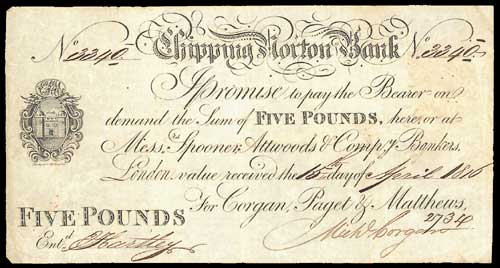 No. 3340 Chipping Norton Bank No. 3340
I Promise to pay the Bearer on
demand the Sum of FIVE POUNDS, here, or at
Mess.rs Spooner, Attwoods & Comp.y Bankers,
London, value received the 15 day of April 1816
For Corgan, Paget & Matthews,
2734
FIVE POUNDS
Ent.d EHartley Mich.l Corgan